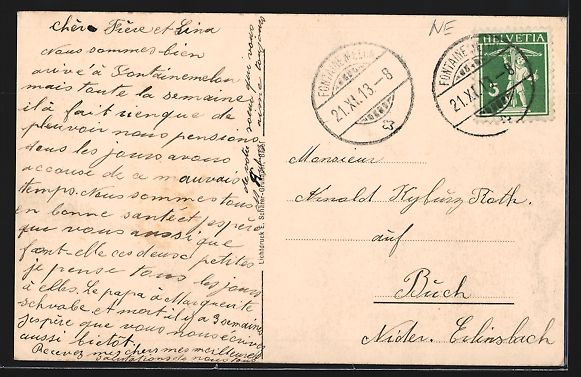 Chère Frère et Lina
Nous sommes bien
arivé à Fontainemelon
mais toute la semaine
il à fait rien que de
pleuvoir nous pensions
tous les jours avous
accause de ce mauvais
temps. Nous sommes tous
en bonne santé et j'espère
que vous aussi que
font-elle ces deux petites
je pense tous les jours
à elles. Le papa à Marguerite
Schwabe et mort il y a 3 semaines
j'espère que vous nous écrivez
aussi bientot.
Recevez mes chers mes meilleures
salutations de nous tous
de votre sœur qui vous
aime toujours
Lichtdruck E.
NE
HELVETIA
5
FONTAINEMELON
21.XI.13–8
FONTAINEMELON
21.XI.13–8
Monsieur
Arnold Kyburz Roth.
auf
Buch
Nider. Erlinsbach